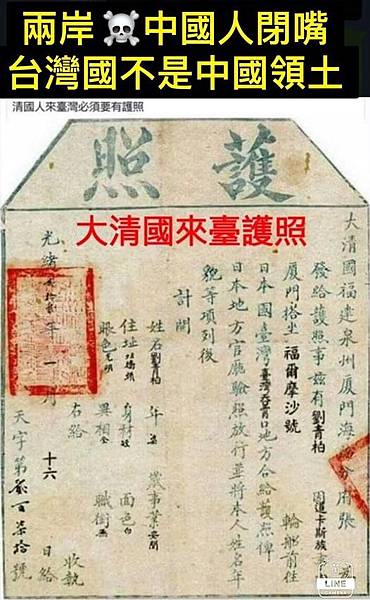 兩岸☠中國人閉嘴
台灣國不是中國領土
清國人來臺灣必須要有護照
護照
大清國來臺護照
大清國福建泉州廈門海防分府張 為
發給護照事茲有劉青柏 道卡斯族
廈門搭坐福爾摩沙號 輪船前往
日本國臺灣 口地方合給護照俾
日本地方官廳驗照放行並將本人姓名年
貌等項列後
計開
姓名劉青柏 年 歲事業
住址 身材 面色白
眼色 異相 職銜
右給 收執
光緒 年 一月 十六 日給
天字第貳百柒拾號
LINE
CAMERA